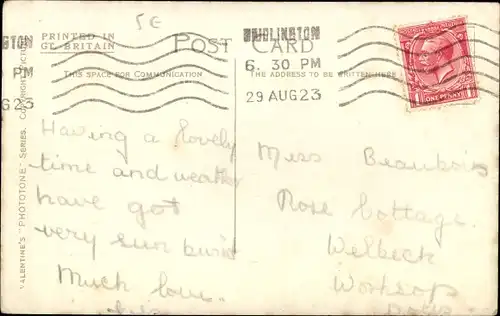 5€
PRINTED IN
GT. BRITAIN
POST CARD
BRIDLINGTON
6. 30 PM
29 AUG 23
GTON
PM
G 23
THIS SPACE FOR COMMUNICATION
THE ADDRESS TO BE WRITTEN HERE
ONE PENNY
VALENTINE'S "PHOTOTONE" SERIES. COPYRIGHT PICTURE
Having a lovely
time and weather
have got
very sun burnt
Much love.
Miss Beaubois
Rose Cottage.
Welbeck
Worksop
Notts